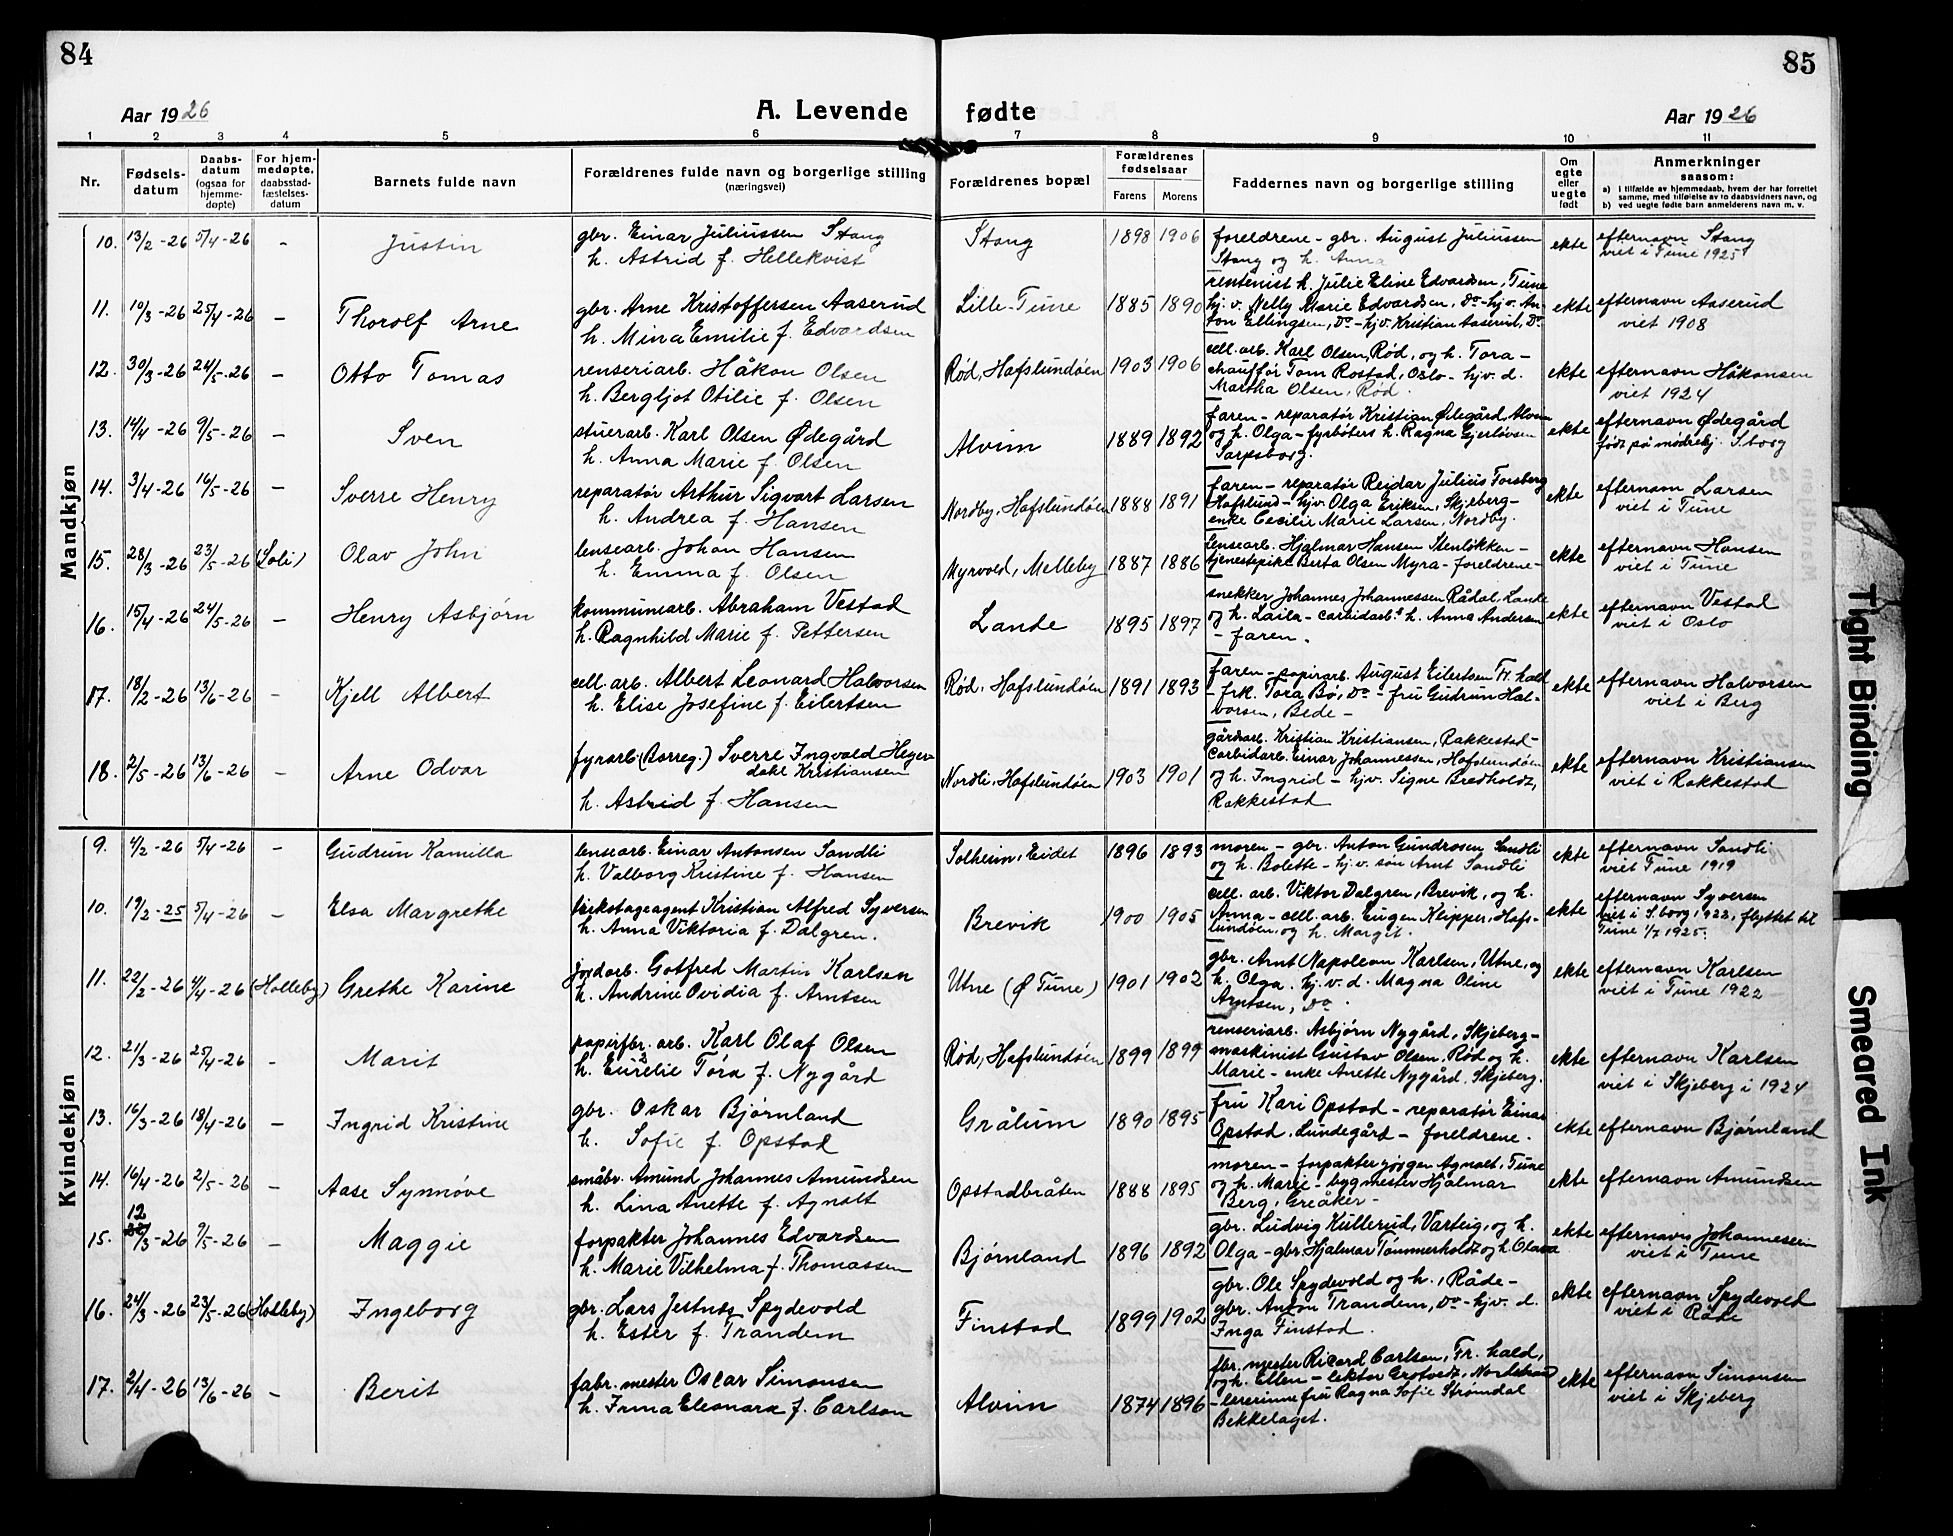 84
85
Aar 1926
A. Levende fødte
Aar 1926
1 2 3 4 5 6 7 8 9 10 11
Nr.
Fødsels-
datum
Daabs-
datum
(ogsaa for
hjemme-
døpte)
For hjem-
medøpte,
daabsstad-
fæstelses-
datum
Barnets fulde navn
Forældrenes fulde navn og borgerlige stilling
(næringsvei)
Forældrenes bopæl
Forældrenes
fødselsaar
Farens
Morens
Faddernes navn og borgerlige stilling
Om
egte
eller
uegte
født
Anmerkninger
saasom:
a) i tilfælde av hjemmedaab, hvem der har forrettet
samme, med tilføielse av to daabsvidners navn, og
b) ved uegte fødte barn anmelderens navn m. v.
Mandkjøn
10. 13/2-26 5/4-26 - Justin
gbr. Einar Juliussen Stang
h. Astrid f. Hellekvist
Stang 1898 1906
foreldrene - gbr. August Juliussen
Stang og h. Anna
ekte
efternavn Stang
viet i Tune 1925
11. 10/3-26 25/4-26 - Thorolf Arne
gbr. Arne Kristoffersen Aaserud
h. Mina Emilie f. Edvardsen
Lille-Tune 1885 1890
rentenist h. Julie Eline Edvardsen, Tune
hj. v. Nelly Marie Edvardsen, Do - hj.v. An-
ton Ellingsen, Do - hjv. Kristian Aaserud, Do
ekte
efternavn Aaserud
viet 1908
12. 30/3-26 24/5-26 - Otto Tomas
renseriarb. Håkon Olsen
h. Bergljot Otilie f. Olsen
Rød, Hafslundøen 1903 1906
cell. arb. Karl Olsen, Rød, og h. Tora -
chauffør Tom Rostad, Oslo - hjv. d.
Martha Olsen, Rød.
ekte
efternavn Håkonsen
viet 1924
13. 14/4-26 9/5-26 - Sven
stuerarb. Karl Olsen Ødegård
h. Anna Marie f. Olsen
Alvim 1889 1892
faren - reparatør Kristian Ødegård, Alvim
og h. Olga - fyrbøters h. Ragna Gjerløvsen
Sarpsborg.
ekte
efternavn Ødegård
født på mødrehj. S.borg
14. 3/4-26 16/5-26 - Sverre Henry
reparatør Arthur Sigvart Larsen
h. Andrea f. Hansen
Nordby, Hafslundøen 1888 1891
faren - reparatør Reidar Julius Forsberg
Hafslund - hjv. Olga Eriksen, Skjeberg -
enke Cecilie Marie Larsen, Nordby.
ekte
efternavn Larsen
viet i Tune
15. 28/3-26 23/5-26 (Soli) Olav John
lensearb. Johan Hansen
h. Emma f. Olsen
Myrvold, Melleby 1887 1886
lensearb. Hjalmar Hansen Stenløkken -
tjenestepike Berta Olsen Myra - foreldrene -
ekte
efternavn Hansen
viet i Tune
16. 15/4-26 24/5-26 - Henry Asbjørn
kommunearb. Abraham Vestad
h. Ragnhild Marie f. Pettersen
Lande 1895 1897
snekker Johannes Johannessen Rådal, Lande
og h. Laila - carbidarb.s h. Anna Andersen
- faren.
ekte
efternavn Vestad
viet i Oslo
17. 18/2-26 13/6-26 - Kjell Albert
cell. arb. Albert Leonard Halvorsen
h. Elise Josefine f. Eilertsen
Rød, Hafslundøen 1891 1893
faren - papirarb. August Eilertsen Fr.hald
- frk. Tora Bø, Do - fru Gudrun Hal-
vorsen, Bede -
ekte
efternavn Halvorsen
viet i Berg
18. 2/5-26 13/6-26 - Arne Odvar
fyrarb. (Borreg.) Sverre Ingvald Heger
dahl Kristiansen
h. Astrid f. Hansen
Nordli, Hafslundøen 1903 1901
gårdsarb. Kristian Kristiansen, Rakkestad -
Carbidarb. Einar Johannessen, Hafslundøen
og h. Ingrid - hjv. Signe Bredholdt,
Rakkestad
ekte
efternavn Kristiansen
viet i Rakkestad
Kvindekjøn
9. 4/2-26 5/4-26 - Gudrun Kamilla
lensearb. Einar Antonsen Sandli
h. Valborg Kristine f. Hansen
Solheim, Eidet 1896 1893
moren - gbr. Anton Gundrosen Sandli
og h. Bolette - hj.v. søn Arnt Sandli
ekte
efternavn Sandli
viet Tune 1919
10. 19/2-25 5/4-26 - Elsa Margrethe
trikotageagent Kristian Alfred Syversen
h. Anna Viktoria f. Dalgren.
Brevik 1900 1905
cell. arb. Viktor Dalgren, Brevik, og h.
Anna - cell. arb. Eugen Klipper, Hafs-
lundøen, og h. Margit.
ekte
efternavn Syversen
viet i S.borg 1922, flyttet til
Tune 1/7 1925.
11. 22/2-26 4/4-26 (Holleby) Grethe Karine
jordarb. Gotfred Martin Karlsen
h. Andrine Ovidia f. Arntsen
Utne (Ø Tune) 1901 1902
gbr. Arnt Napoleon Karlsen, Utne, og
h. Olga. hj.v. d. Magna Oline
Arntsen, Do.
ekte
efternavn Karlsen
viet i Tune 1922
12. 21/3-26 25/4-26 - Marit
papirfbr. arb. Karl Olaf Olsen
h. Eurelie Tora f. Nygård
Rød, Hafslundøen 1899 1899
renseriarb. Asbjørn Nygård, Skjeberg -
maskinist Gustav Olsen, Rød og h.
Marie - enke Anette Nygård, Skjeberg.
ekte
efternavn Karlsen
viet i Skjeberg i 1924
13. 16/3-26 18/4-26 - Ingrid Kristine
gbr. Oskar Bjørnland
h. Sofie f. Opstad
Grålum 1890 1895
fru Kari Opstad - reparatør Einar
Opstad, Lundegård - foreldrene.
ekte
efternavn Bjørnland
14. 16/4-26 2/5-26 - Aase Synnøve
småbr. Amund Johannes Amundsen
h. Lina Anette f. Agnalt
Opstadbråten 1888 1895
moren - forpakter Jørgen Agnalt, Tune
og h. Marie - bygmester Hjalmar
Berg, Greåker -
ekte
efternavn Amundsen
12
15. 22/3-26 9/5-26 - Maggie
forpakter Johannes Edvardsen
h. Marie Vilhelma f. Thomassen
Bjørnland 1896 1892
gbr. Ludvig Kullerud, Varteig, og h.
Olga - gbr. Hjalmar Tømmerholdt og h. Olava
ekte
efternavn Johannesen
viet i Tune
16. 24/3-26 23/5-26 (Holleby) Ingeborg
gbr. Lars Jestnes Spydevold
h. Ester f. Trandem
Finstad 1899 1902
gbr. Ole Spydevold og h., Råde -
gbr. Anton Trandem, Do - hjv. d.
Inga Finstad.
ekte
efternavn Spydevold
viet i Råde
17. 2/4-26 13/6-26 - Berit
fabr. mester Oscar Simonsen
h. Irma Eleonora f. Carlson
Alvim 1874 1896
fbr. mester Ricard Carlson, Fr.hald,
og h. Ellen - lektor Grotvedt, Nordstrand
- lererinne fru Ragna Sofie Strømdal
Bekkelaget.
ekte
efternavn Simonsen
viet i Skjeberg
Tight Binding
Smeared Ink